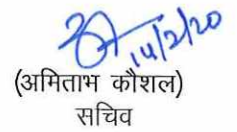 14/2/20
(अमिताभ कौशल)
सचिव